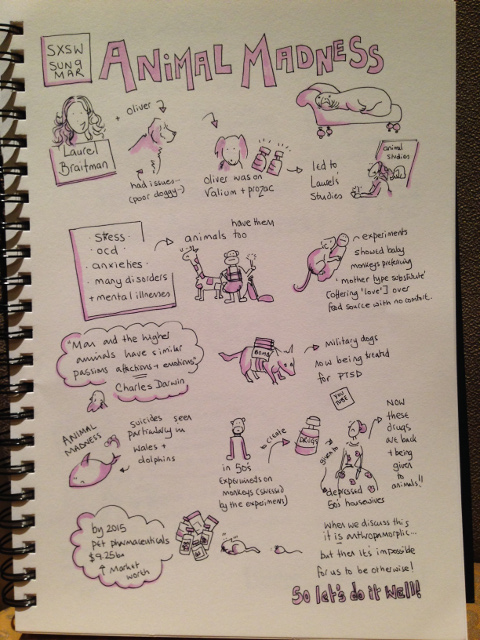 SXSW
SUN 9
MAR
ANIMAL MADNESS
Laurel
Braitman
+ oliver
had issues
(poor doggy)
oliver was on
Valium + prozac
led to
Laurel's
Studies
animal
studies
· Stress ·
· ocd ·
· anxieties ·
· many disorders
+ mental illnesses
have them
animals too
experiments
should baby
monkeys prefering
'mother type substitute'
(offering 'love') over
food source with no comfort.
"Man and the higher
animals have similar
passions affections + emotions"
Charles Darwin
BOMB
military dogs
now being treated
for PTSD
ANIMAL
MADNESS
suicides seen
particularly in
wales +
dolphins
in 50s
Experiments on
monkeys (stressed
by the experiments)
to create
DRUGS
given to
YOU
TUBE
depressed
50s housewives
NOW
these
drugs
are back
+ being
given
to
animals!!
by 2015
pet pharmaceuticals
$9.25bn
↑ Market
worth
When we discuss this
it is anthropamorphic...
but then it's impossible
for us to be otherwise!
So let's do it well!